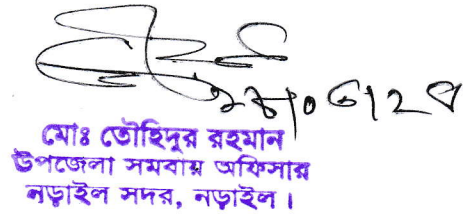 মোঃ তৌহিদুর রহমান
উপজেলা সমবায় অফিসার
নড়াইল সদর, নড়াইল।